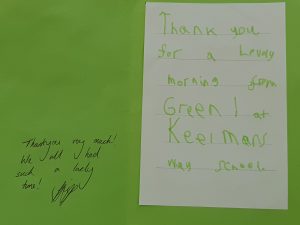 Thank you very much!
We all had
such a lovely
time!
Thank you
for a Lovely
morning from
Green 1 at
Keelman's
Way School